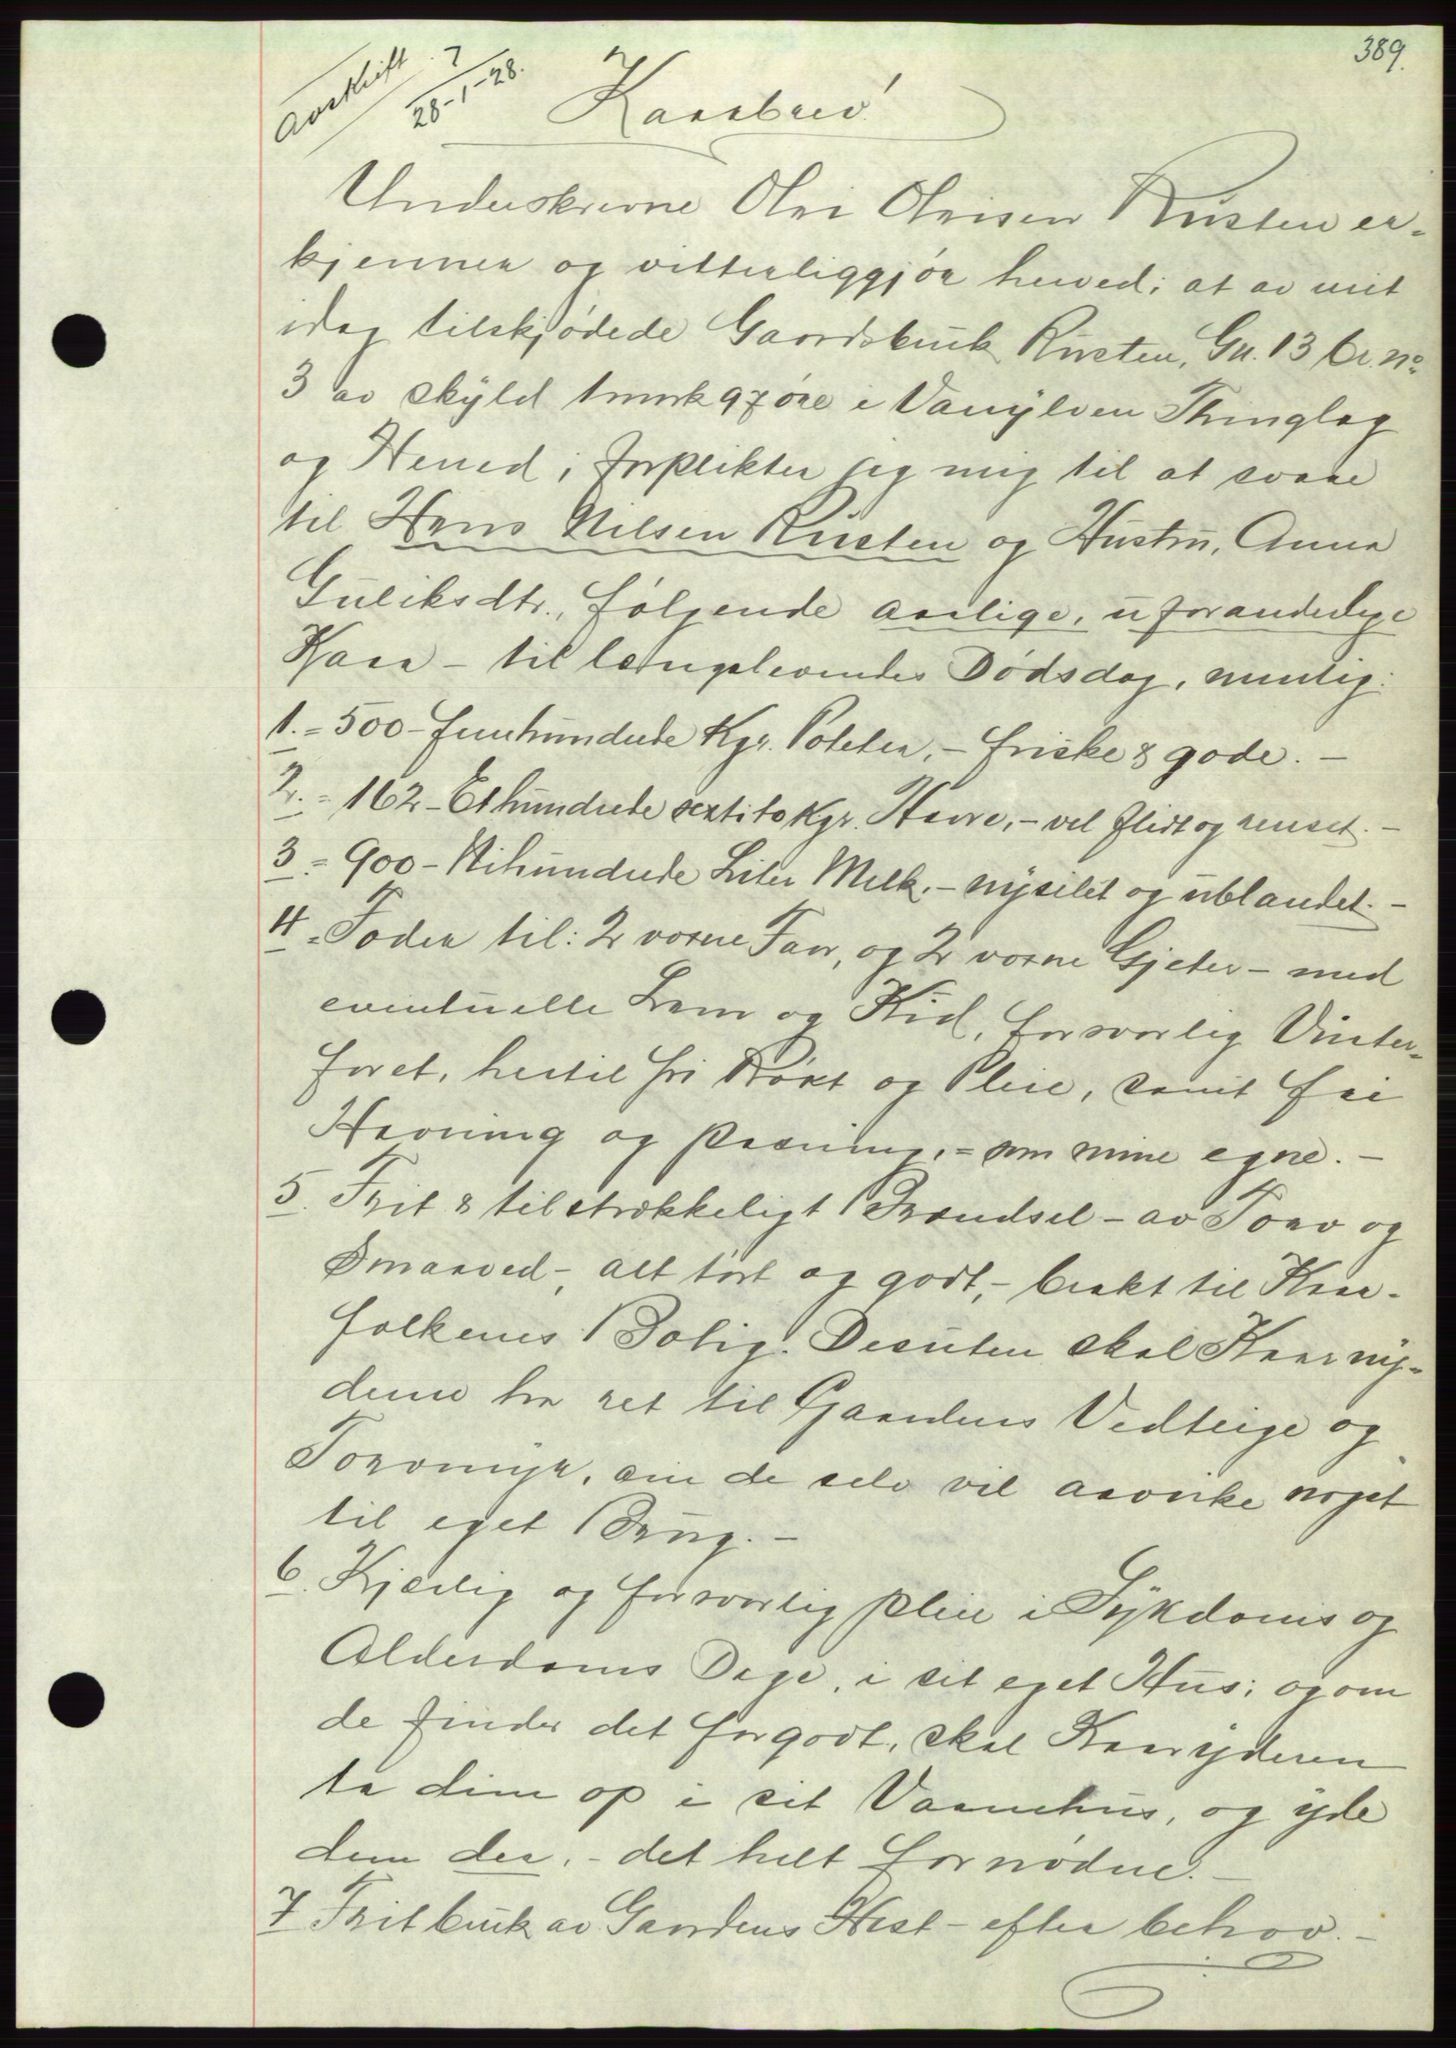 389.
Avskrift 7
28-1-28.
Kaarbrev!
Underskrevne Olai Olaisen Rusten er-
kjenner og vitterliggjör herved; at av mit
idag tilskjödede Gaardsbruk Rusten, Gn. 13 br. no
3 av skyld 1 mark 97 öre i Vanylven Thinglag
og Herred; forplikter jeg mig til at svare
til Hans Nilsen Rusten og Hustru, Anna
Guliksdtr., fölgende aarlige, uforanderlige
Kaar - til længslevendes Dödsdag, nemlig:
1. = 500 - femhundrede Kgr. Poteter, - friske & gode. -
2. = 162 - Ethundrede sextito Kgr. Havre, - vel flidt og renset. -
3. = 900 - Nihundrede Liter Melk, - nysilet og ublandet. -
4 = Foder til: 2 voxne Faar, og 2 voxne Gjeter - med
eventuelle Lam og Kid, forsvarlig Vinter-
foret, hertil fri Rökt og Pleie, samt fri
Havning og pasning, = som mine egne. -
5. Frit & tilstrækkeligt Brændsel - av Torv og
Smaaved -, alt tört og godt, - brakt til Kaar-
folkenes Bolig. Desuten skal Kaarny-
derne ha ret til Gaardens Vedteige og
Torvmyr, om de selv vil aavirke noget
til eget Brug. -
6. Kjærlig og forsvarlig pleie i Sykdoms og
Alderdoms Dage, i sit eget Hus; og om
de finder det forgodt, skal Kaaryderen
ta dem op i sit Vaanehus, og yde
dem der, - det helt fornødne. -
7 Frit bruk av Gaardens Hest - efter behov. -